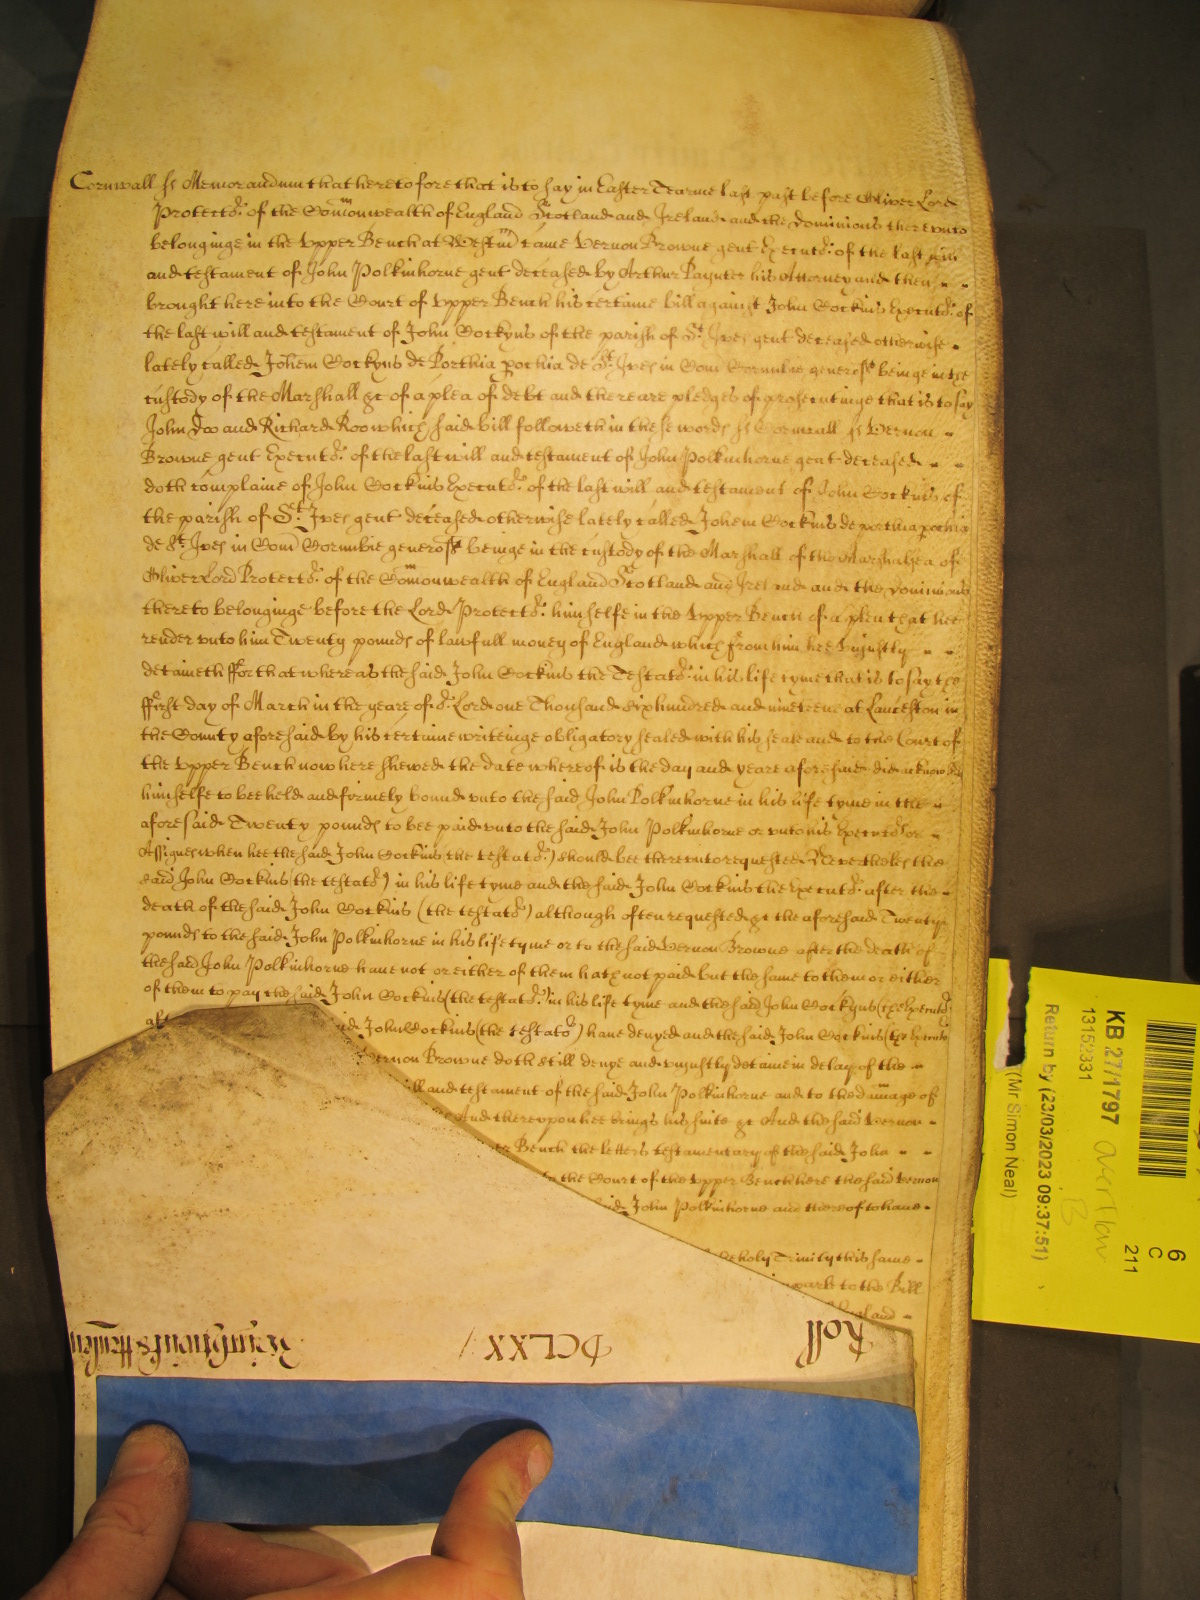 Cornwall ss Memorandum that heretofore that is to say in Easter Tearme last past before Oliver Lord
Protector of the Comonwealth of England Scotland and Ireland and the dominions thereunto
belonginge in the Upper Bench at Westm came Vernon Browne gent Executor of the last will
and testament of John Polkinhorne gent deceased by Arthur Paynter his Attorney and then
brought here into the Court of Upper Bench his certaine bill against John Cockins Executor of
the last will and testament of John Cockyns of the parish of St Ives gent deceased otherwise
lately called Johem Cockyns de Porthia pochia de St Ives in Com Cornubie geneross beinge in the
custody of the Marshall &c of a plea of debt and there are pledges of prosecutinge that is to say
John Doo and Richard Roo which said bill followeth in these words ss Cornwall ss Vernon
Browne gent Executor of the last will and testament of John Polkinhorne gent deceased
doth complaine of John Cockins Executor of the last will and testament of John Cockins of
the parish of St Ives gent deceased otherwise lately called Johem Cockins de porthia pochia
de St Ives in Com Cornubie geneross beinge in the custody of the Marshall of the Marshalsea of
Oliver Lord Protector of the Comonwealth of England Scotland and Ireland and the dominions
thereto belonginge before the Lord Protector himselfe in the Upper Bench of a plea that hee
render unto him Twenty pounds of lawfull money of England which from him hee unjustly
detaineth ffor that whereas the said John Cockins the Testator in his life tyme that is to say the
ffirst day of March in the yeare of or Lord one Thousand six hundred and nineteene at Lanceston in
the County aforesaid by his certaine writeinge obligatory sealed with his seale and to the Court of
the Upper Bench now here shewed the date whereof is the day and yeare aforesaid did acknowledg
himselfe to bee held and firmely bound unto the said John Polkinhorne in his life tyme in the
aforesaid Twenty pounds to bee paid unto the said John Polkinhorne or unto his Executor or
Assignes when hee the said John Cockins (the testator) should bee thereunto requested Neverthelesse the
said John Cockins (the testator) in his life tyme and the said John Cockins the Executor after the
death of the said John Cockins (the testator) although often requested &c the aforesaid Twenty
pounds to the said John Polkinhorne in his life tyme or to the said Vernon Browne after the death of
the said John Polkinhorne have not or either of them hath not paid but the same to them or either
of them to pay the said John Cockins (the testator) in his life tyme and the said John Cockyns (the Executor
John Cockins (the testator) have denyed and the said John Cockins (the Executor
Vernon Browne doth still denye and unjustly detaine in delay of the
and testament of the said John Polkinhorne and to the damage of
And thereupon hee brings his suite &c And the said Vernon
Bench the letters testamentary of the said John
the Court of the Upper Bench here the said Vernon
John Polkinhorne and thereof to have
holy Trinity this same
to the Bill
Roll DCLXX
KB 27/1797
13152331
Return by (23/03/2023 09:37:51)
(Mr Simon Neal)
6
C
211
overflow
B